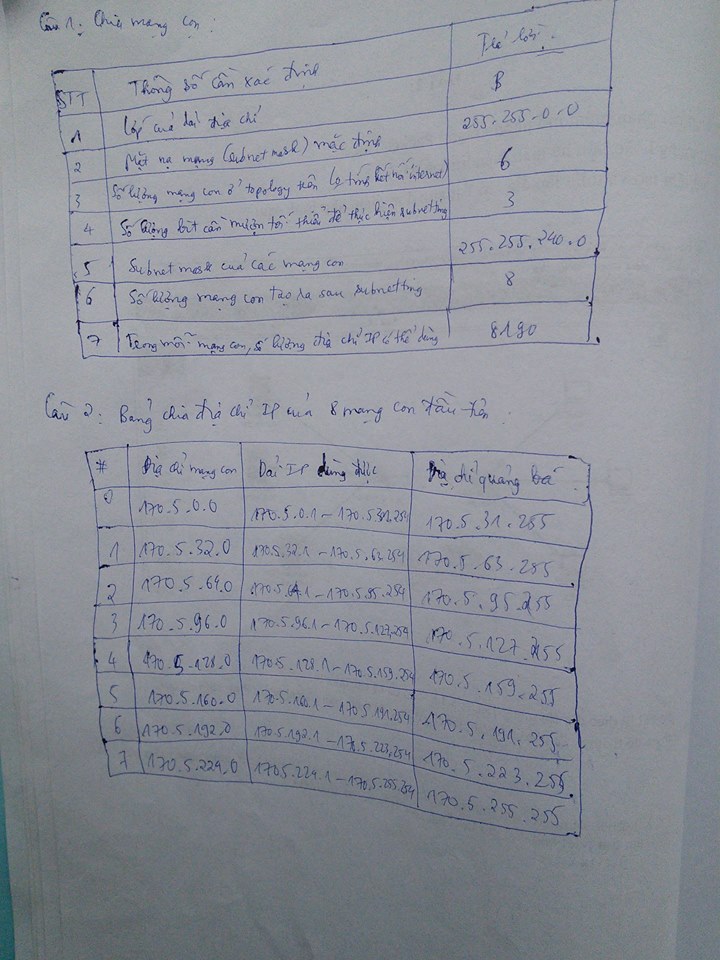 Câu 1: Chia mạng con:
STT Thông số cần xác định Trả lời
1 Lớp của dải địa chỉ B
2 Mặt nạ mạng (subnet mask) mặc định 255.255.0.0
3 Số lượng mạng con ở topology trên (ko tính kết nối internet) 6
4 Số lượng bit cần mượn tối thiểu để thực hiện subnetting 3
5 Subnet mask của các mạng con 255.255.240.0
6 Số lượng mạng con tạo ra sau subnetting 8
7 Trong mỗi mạng con, số lượng địa chỉ IP có thể dùng 8190
Câu 2: Bảng chia địa chỉ IP của 8 mạng con đầu tiên.
# Địa chỉ mạng con Dải IP dùng được Địa chỉ quảng bá
0 170.5.0.0 170.5.0.1 - 170.5.31.254 170.5.31.255
1 170.5.32.0 170.5.32.1 - 170.5.63.254 170.5.63.255
2 170.5.64.0 170.5.64.1 - 170.5.95.254 170.5.95.255
3 170.5.96.0 170.5.96.1 - 170.5.127.254 170.5.127.255
4 170.5.128.0 170.5.128.1 - 170.5.159.254 170.5.159.255
5 170.5.160.0 170.5.160.1 - 170.5.191.254 170.5.191.255
6 170.5.192.0 170.5.192.1 - 170.5.223.254 170.5.223.255
7 170.5.224.0 170.5.224.1 - 170.5.255.254 170.5.255.255